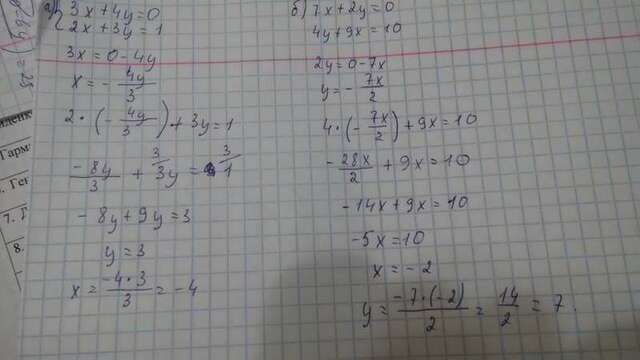 а) { 3x + 4y = 0
2x + 3y = 1
3x = 0 - 4y
x = - 4y/3
2 · (- 4y/3) + 3y = 1
- 8y/3 + 3y = 1
- 8y + 9y = 3
y = 3
x = -4·3/3 = -4
б) 7x + 2y = 0
4y + 9x = 10
2y = 0 - 7x
y = - 7x/2
4 · (- 7x/2) + 9x = 10
- 28x/2 + 9x = 10
- 14x + 9x = 10
-5x = 10
x = -2
y = -7·(-2)/2 = 14/2 = 7.
7. Г
8
Гарм
Ген